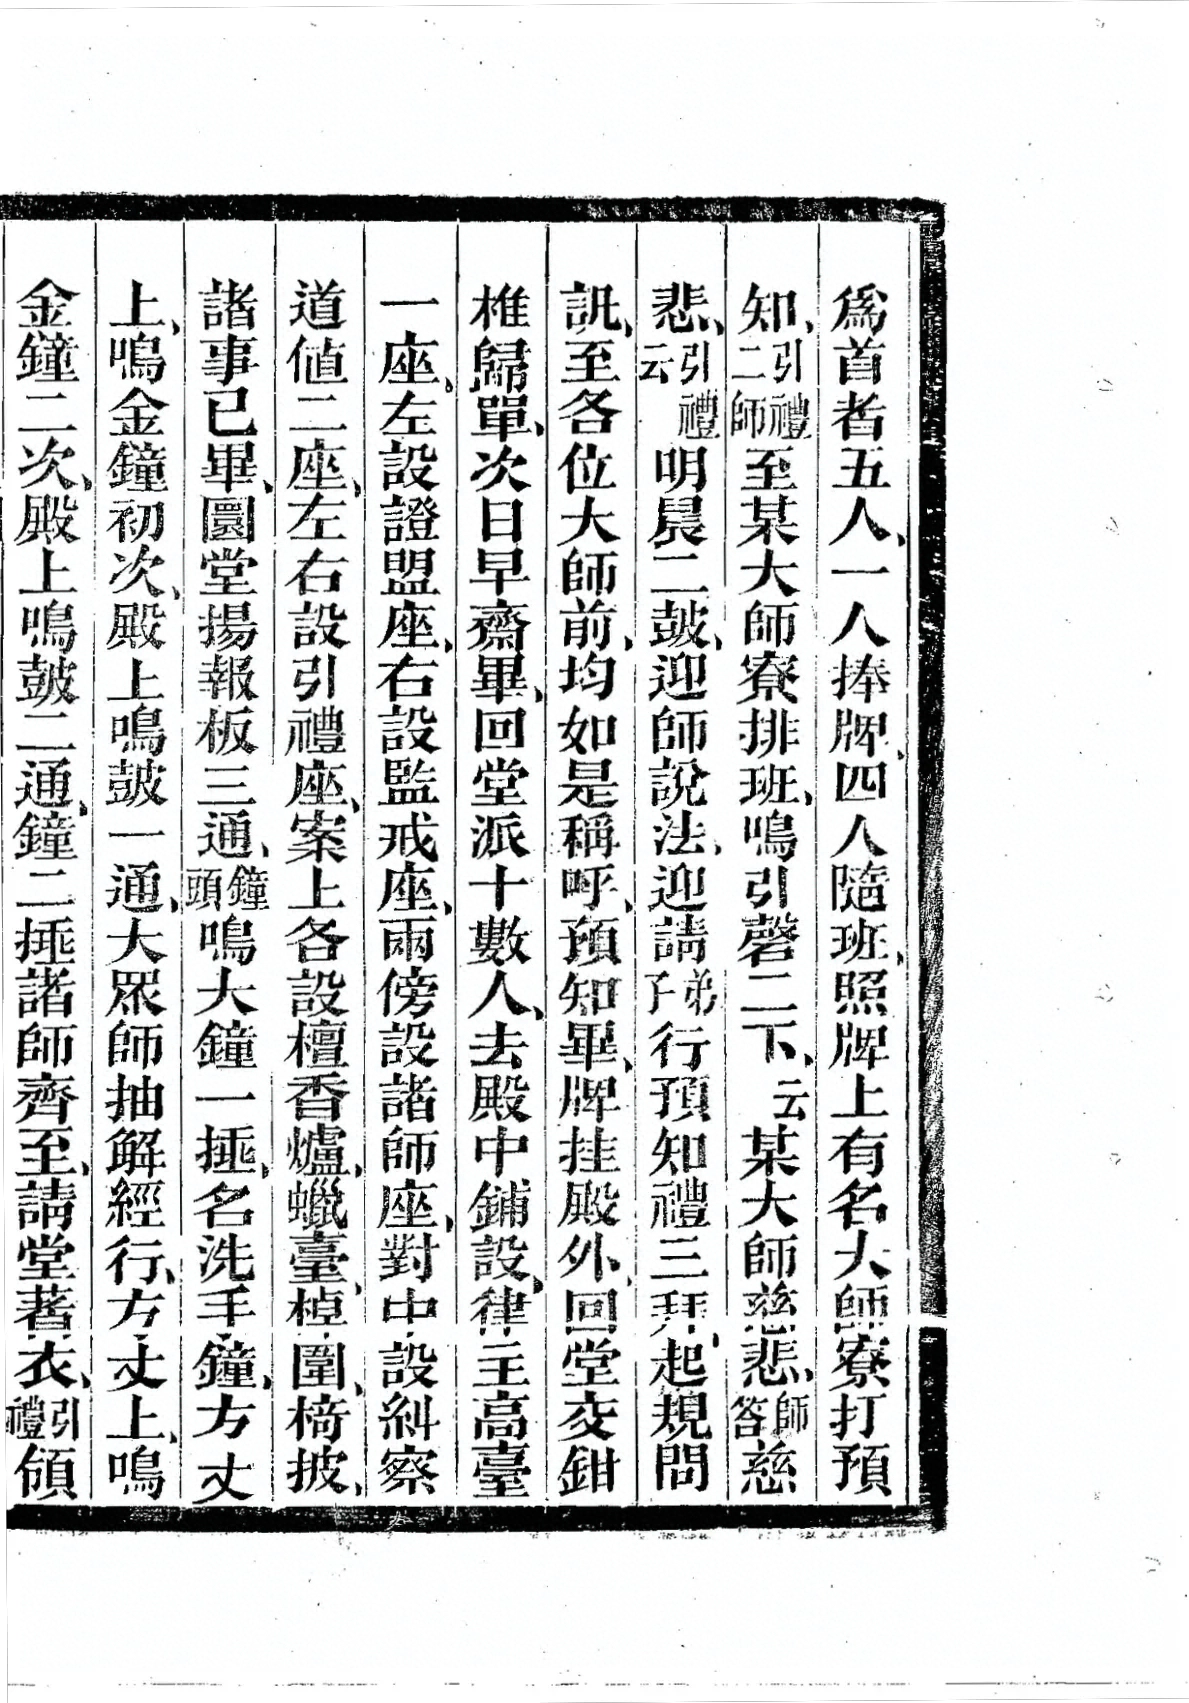 爲首者五人、一人捧牌、四人隨班、照牌上有名大師寮打預
知、引禮二師至某大師寮排班、鳴引磬二下、云某大師慈悲、師答慈
悲、引禮云明晨二皷、迎師說法、迎請弟子行預知禮三拜、起規問
訊、至各位大師前、均如是稱呼、預知畢、牌挂殿外、回堂交鉗
椎歸單、次日早齋畢、回堂派十數人、去殿中鋪設、律主高臺
一座。左設證盟座、右設監戒座、兩傍設諸師座、對中設糾察
道值二座、左右設引禮座、案上各設檀香爐、蠟臺、桌圍、椅披、
諸事已畢、圜堂揚報板三通、鐘頭鳴大鐘一捶、名洗手鐘、方丈
上、鳴金鐘初次、殿上鳴皷一通、大眾師抽解經行、方丈上、鳴
金鐘二次、殿上鳴皷二通、鐘二捶諸師齊至、請堂著衣、引禮領